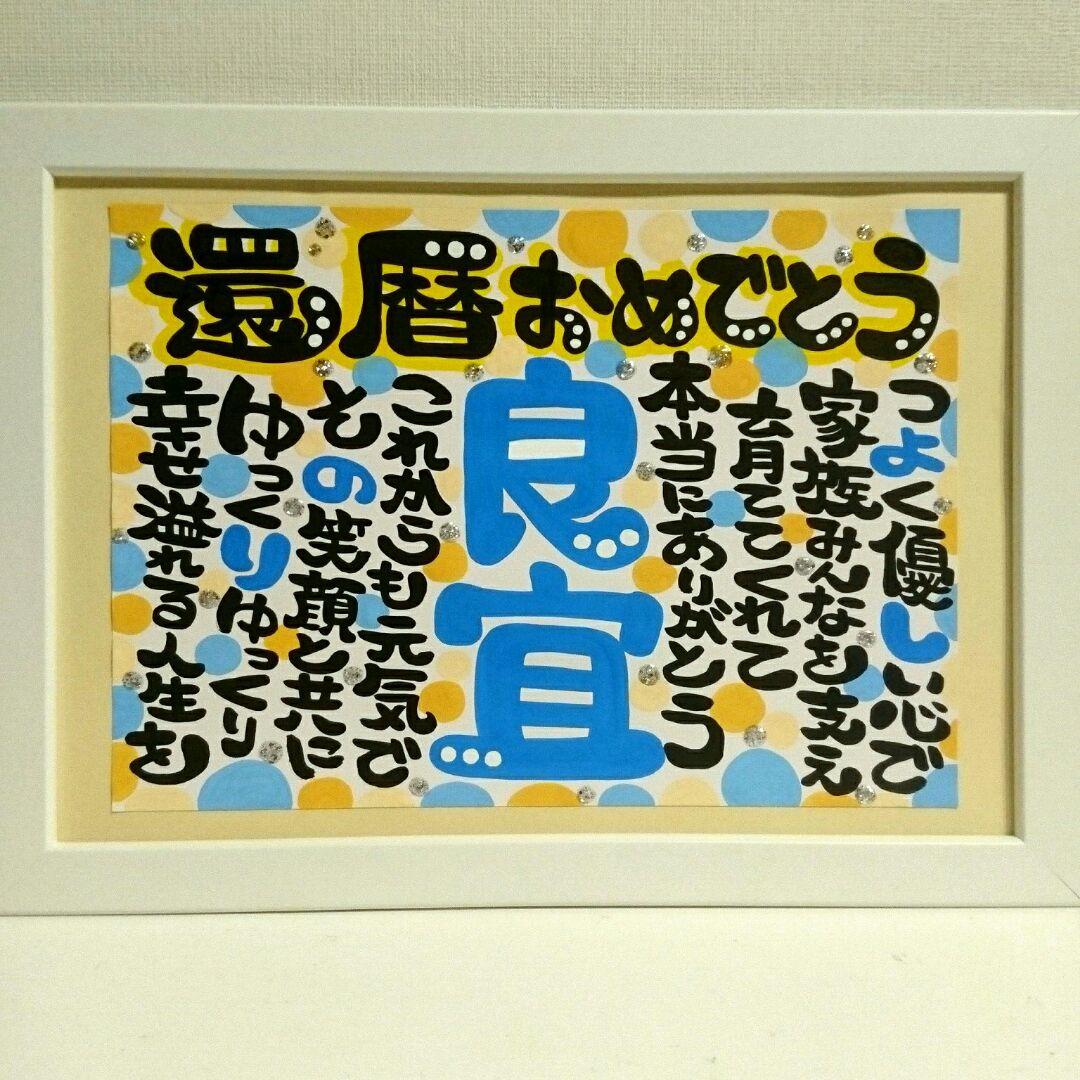 還暦おめでとう
つよく優しい心で
家族みんなを支え
育ててくれて
本当にありがとう
良宜
これからも元気で
その笑顔と共に
ゆっくりゆっくり
幸せ溢れる人生を